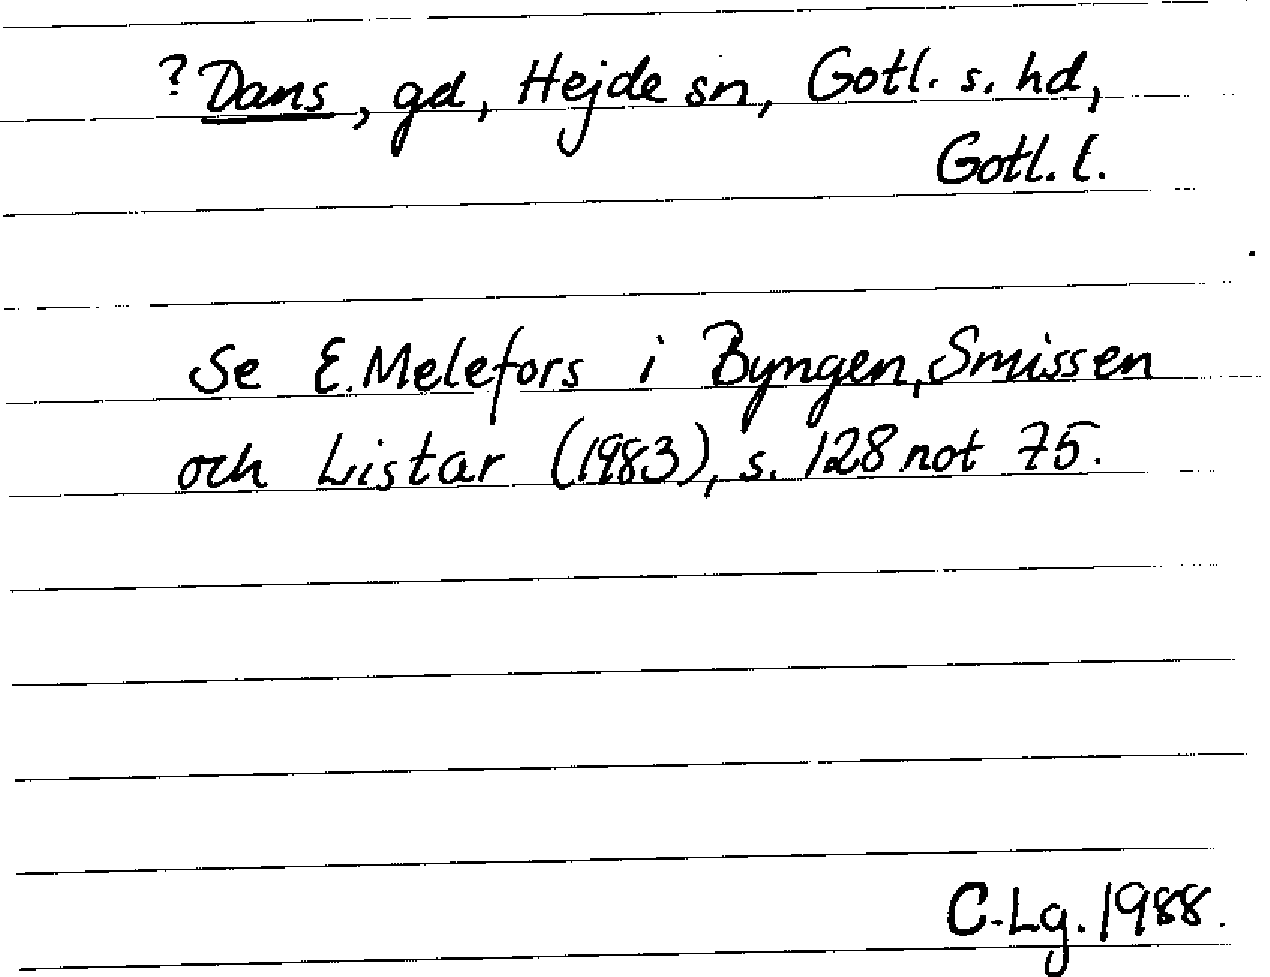 ? Dans, gd, Hejde sn, Gotl. s. hd,
Gotl. l.
Se E. Melefors i Byngen, Smissen
och Listar (1983), s. 128 not 75.
C-Lg. 1988.